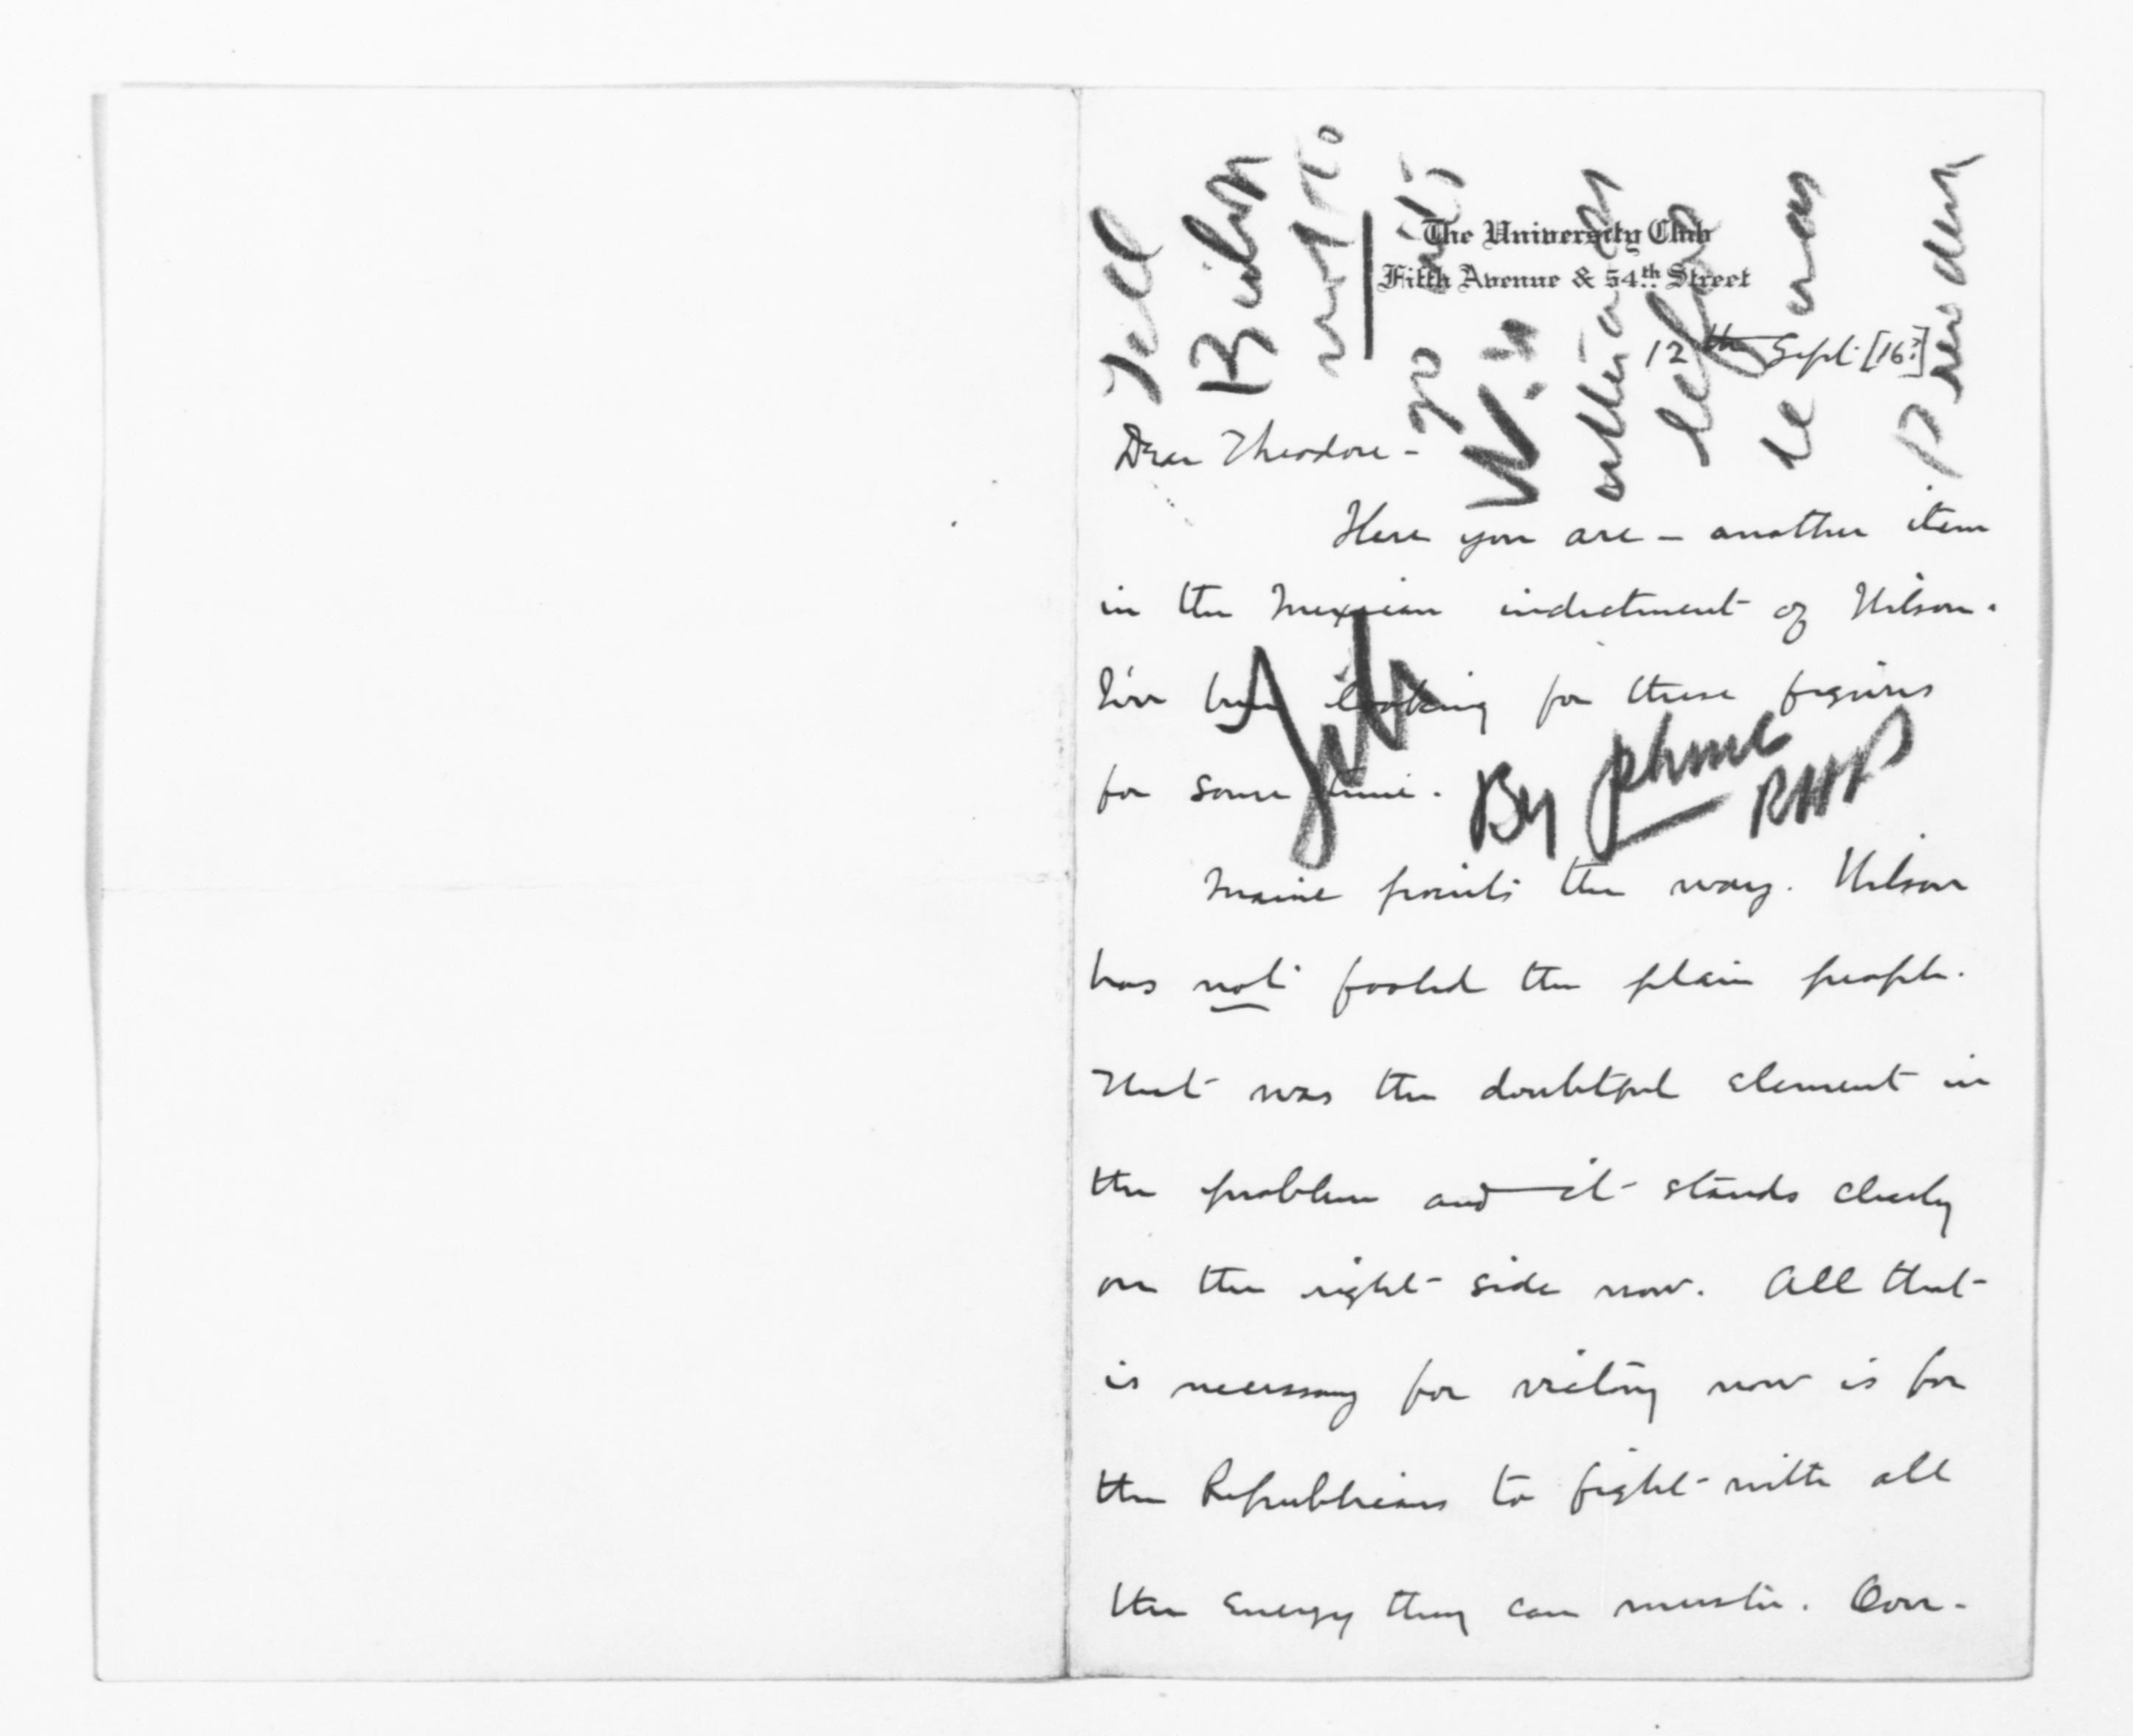 The University Club
Fifth Avenue & 54th Street
12th Sept. [16?]
Tell
Bishop
not to
go into
W's
attitudes
before
he was
President
Dear Theodore -
Here you are - another item
in the Mexican indictment of Wilson.
I've been looking for these figures
for some time.
By phone
RHP
Maine points the way. Wilson
has not fooled the plain people.
That was the doubtful element in
the problem and it stands clearly
on the right side now. All that
is necessary for victory now is for
the Republicans to fight with all
the energy they can muster. Over-